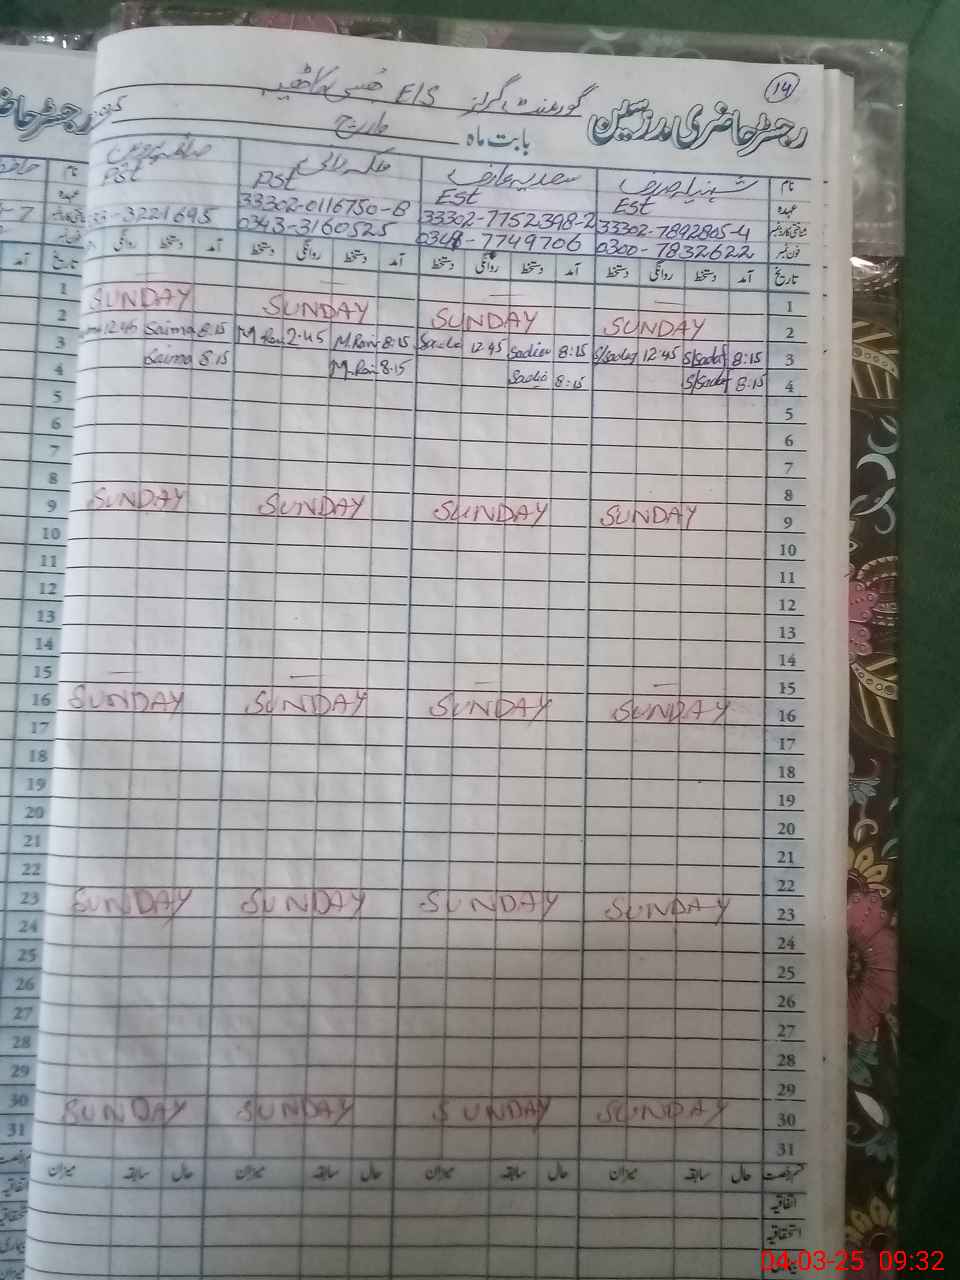 14
گورنمنٹ گرلز E/S
رجسٹر حاضری مدرسین بابت ماہ مارچ
نام
عہدہ Est Est PST PST
33302-7892805-4 33302-7752398-2 33302-0116750-8
فون نمبر 0300-7832622 0348-7749706 0343-3160525 33-3221695
تاریخ آمد دستخط روانگی دستخط آمد دستخط روانگی دستخط آمد دستخط روانگی دستخط آمد دستخط روانگی
1 — — — — 1
2 SUNDAY SUNDAY SUNDAY SUNDAY 2
3 12:45 Saima 8:15 2:45 8:15 12:45 Sadia 8:15 S/Sadaf 12:45 S/Sadaf 8:15 3
4 Saima 8:15 8:15 Sadia 8:15 S/Sadaf 8:15 4
5 5
6 6
7 7
8 8
9 SUNDAY SUNDAY SUNDAY SUNDAY 9
10 10
11 11
12 12
13 13
14 14
15 — — — — 15
16 SUNDAY SUNDAY SUNDAY SUNDAY 16
17 17
18 18
19 19
20 20
21 21
22 22
23 SUNDAY SUNDAY SUNDAY SUNDAY 23
24 24
25 25
26 26
27 27
28 28
29 29
30 SUNDAY SUNDAY SUNDAY SUNDAY 30
31 31
حال سابقہ میزان حال سابقہ میزان حال سابقہ میزان حال سابقہ میزان
اتفاقیہ
استحقاقیہ
04-03-25 09:32